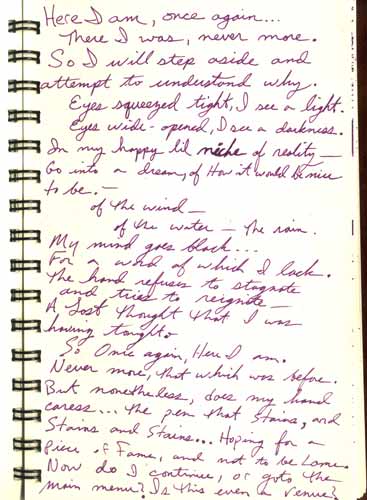 Here I am, once again...
There I was, never more.
So I will step aside and
attempt to understand why.
Eyes squeezed tight, I see a light.
Eyes wide-opened, I see a darkness.
In my happy lil niche of reality—
Go into a dream, of How it would be nice
to be.—
of the wind—
of the water — the rain.
My mind goes black...
For a word of which I lack.
The hand refuses to stagnate
and tries to reignite—
A Lost thought that I was
having tonight.
So Once again, Here I am.
Never more, that which was before.
But nonetheless, does my hand
caress... the pen that Stains, and
Stains and Stains... Hoping for a
piece of Fame, and not to be Lame.
Now do I continue, or goto the
main menu? Is this even a venue?